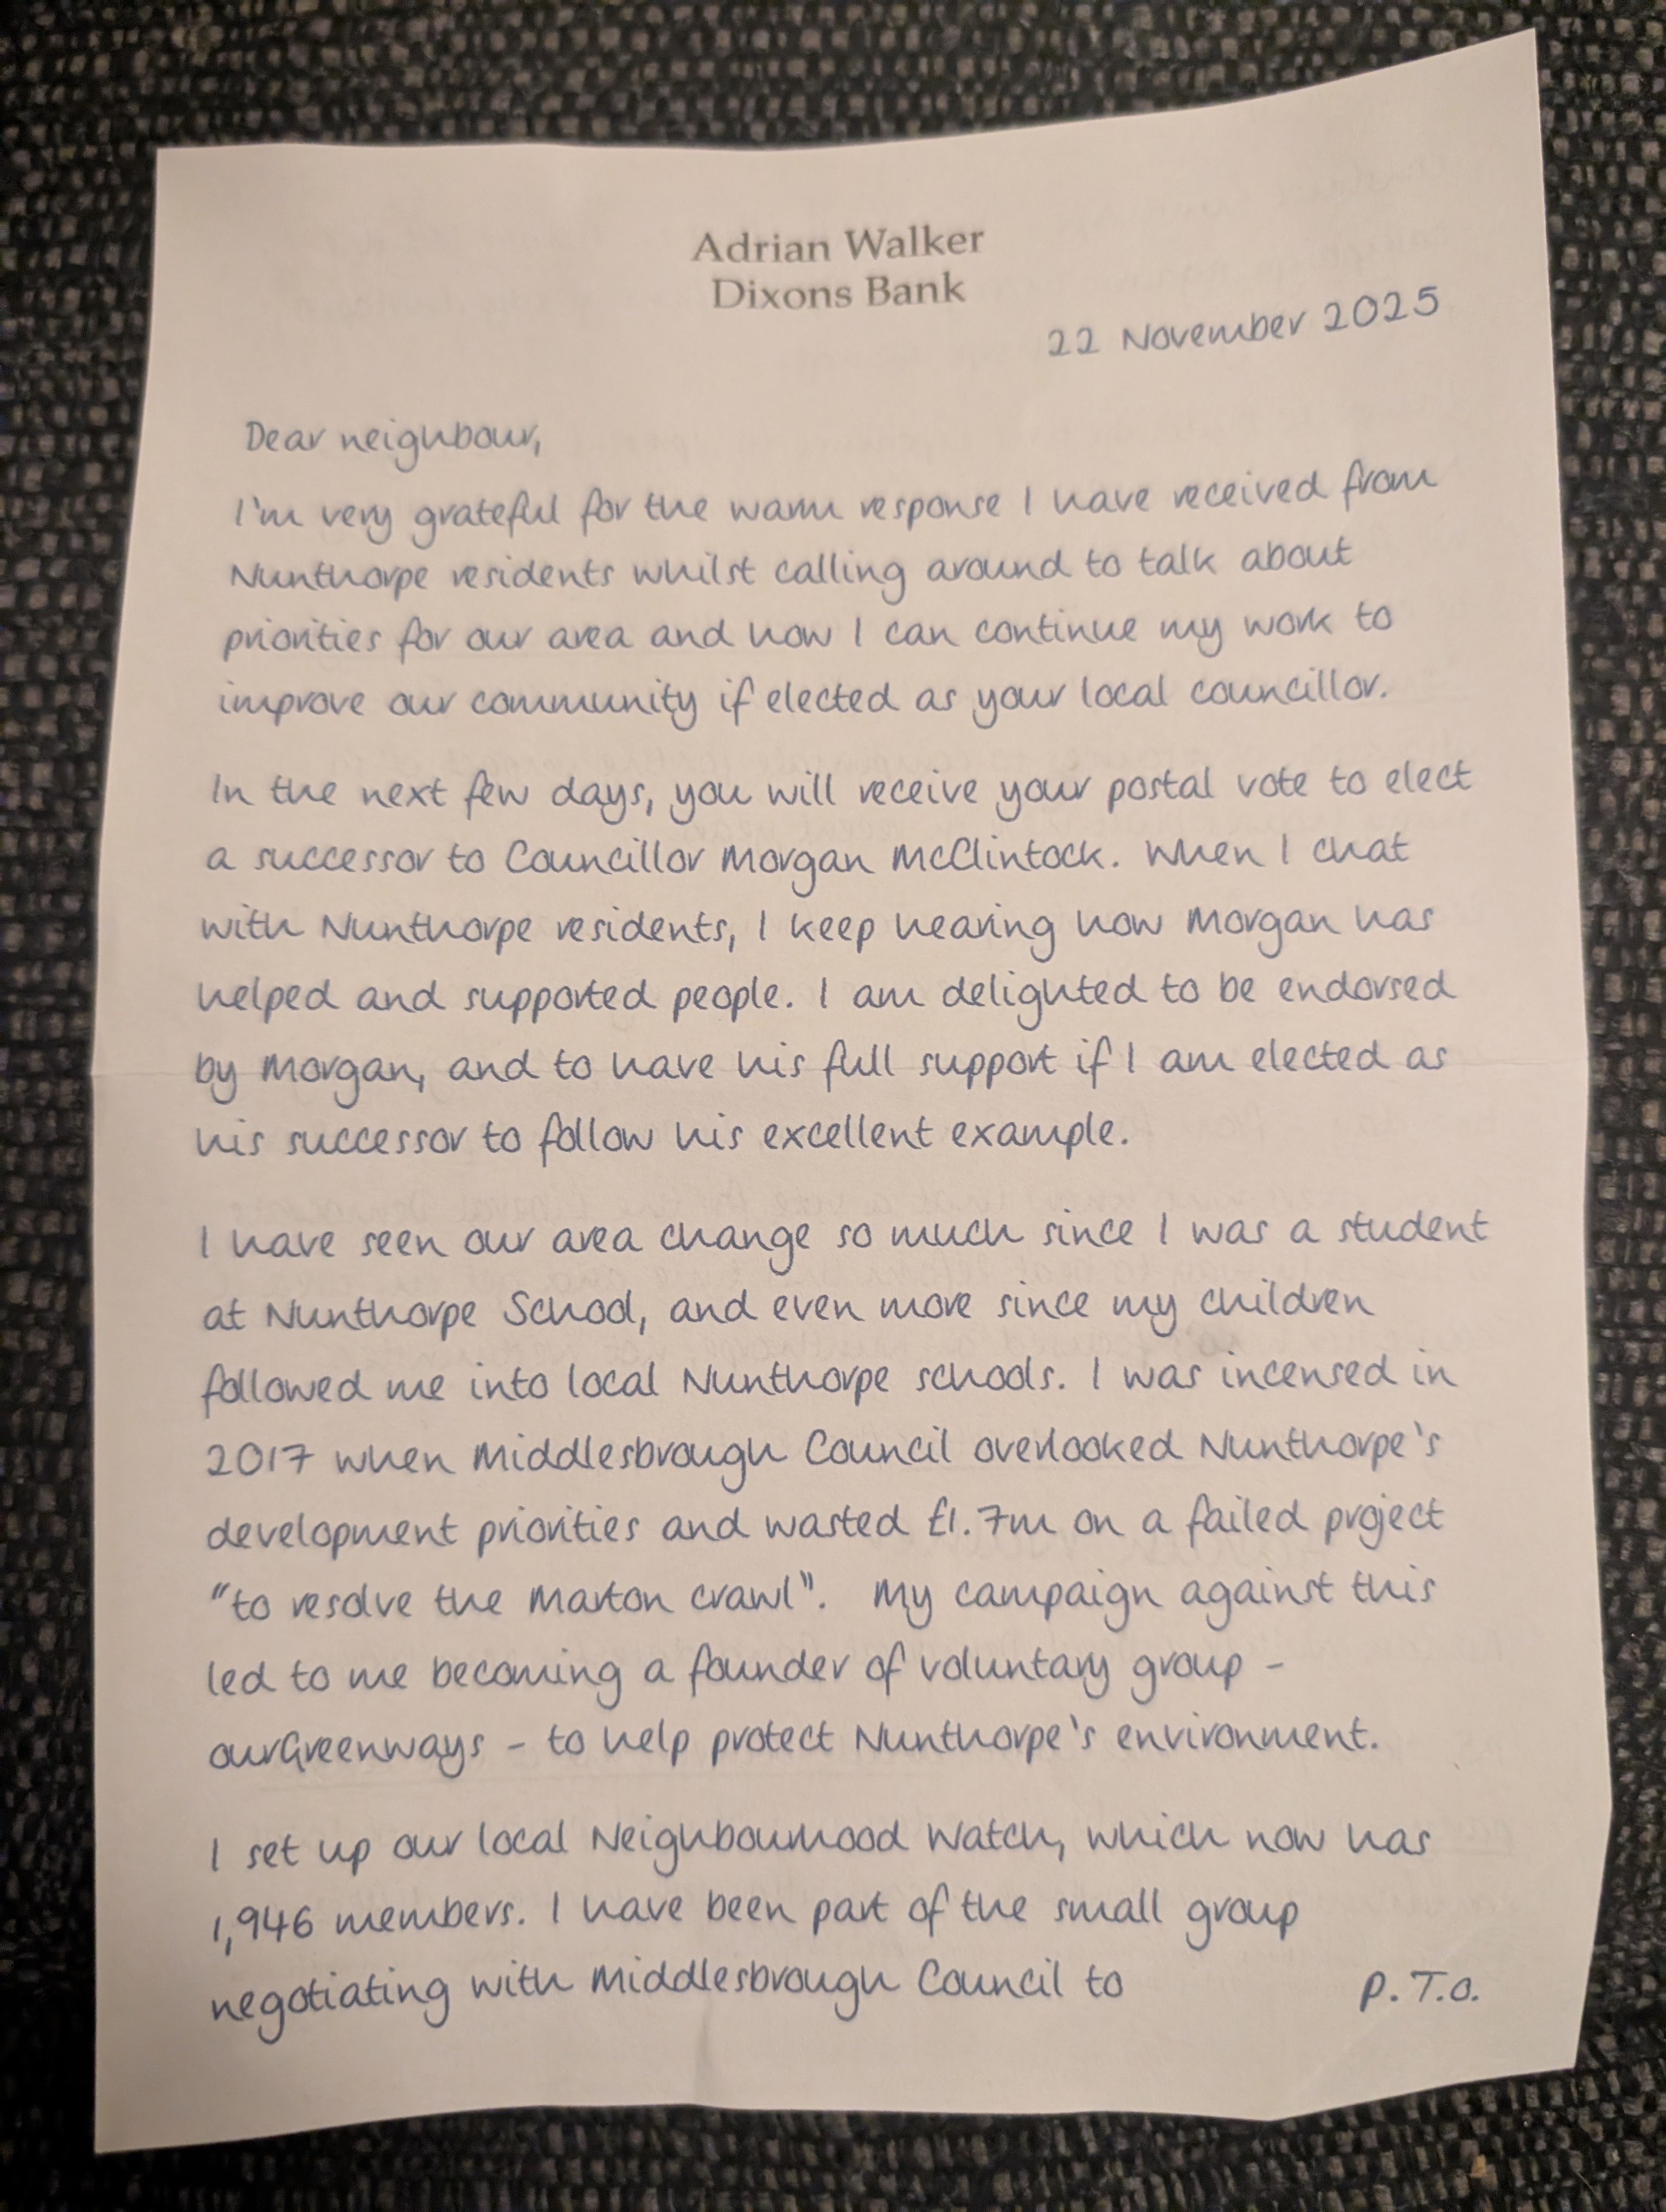 Adrian Walker
Dixons Bank
22 November 2025
Dear neighbour,
I'm very grateful for the warm response I have received from
Nunthorpe residents whilst calling around to talk about
priorities for our area and how I can continue my work to
improve our community if elected as your local councillor.
In the next few days, you will receive your postal vote to elect
a successor to Councillor Morgan McClintock. When I chat
with Nunthorpe residents, I keep hearing how Morgan has
helped and supported people. I am delighted to be endorsed
by Morgan, and to have his full support if I am elected as
his successor to follow his excellent example.
I have seen our area change so much since I was a student
at Nunthorpe School, and even more since my children
followed me into local Nunthorpe schools. I was incensed in
2017 when Middlesbrough Council overlooked Nunthorpe's
development priorities and wasted £1.7m on a failed project
"to resolve the Marton crawl". My campaign against this
led to me becoming a founder of voluntary group -
ourGreenways - to help protect Nunthorpe's environment.
I set up our local Neighbourhood Watch, which now has
1,946 members. I have been part of the small group
negotiating with Middlesbrough Council to P.T.O.